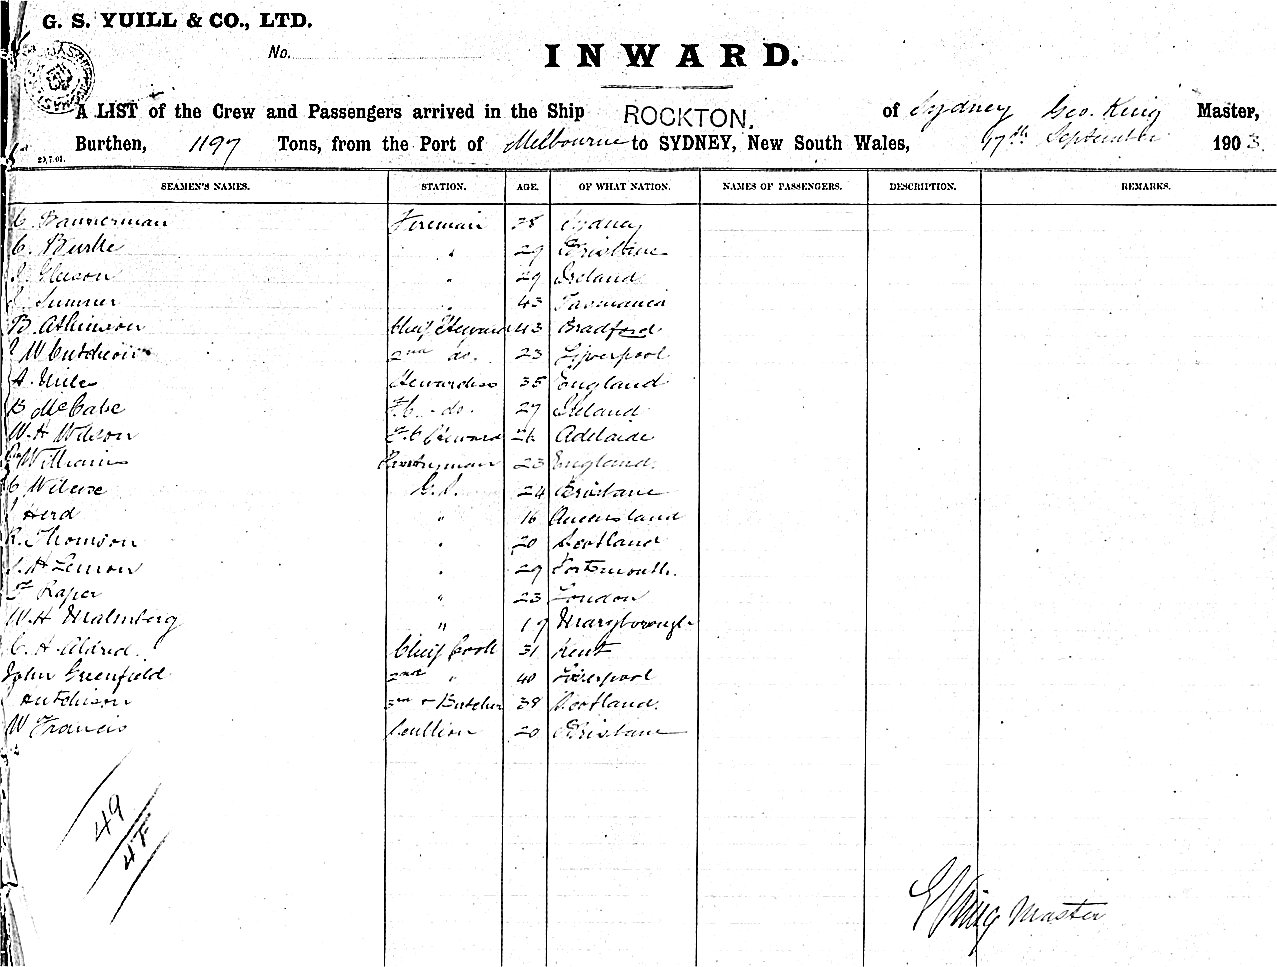 G. S. YUILL & CO., LTD.
No.
INWARD.
A LIST of the Crew and Passengers arrived in the Ship ROCKTON. of Sydney Geo. King Master,
Burthen, 1197 Tons, from the Port of Melbourne to SYDNEY, New South Wales, 17th September 1903.
SEAMEN'S NAMES. STATION. AGE. OF WHAT NATION. NAMES OF PASSENGERS. DESCRIPTION. REMARKS.
C. Bannerman Fireman 38 Sydney
C. Burke " 29 Brisbane
J. Gleeson " 29 Ireland
Sumner " 43 Tasmania
B. Atkinson Chief Steward 43 Bradford
W Cutcheon 2nd do. 23 Liverpool
A. Niles Stewardess 35 England
B McCabe F.C. do. 27 Ireland
W. H Wilson F.C Steward 26 Adelaide
Williams Pantryman 23 England
C Wilcise G.S. 24 Brisbane
Herd " 16 Queensland
R. Thomson " 20 Scotland
H Lemon " 29 Portsmouth.
F Raper " 23 London
W. H Malmberg " 19 Maryborough
C. H. Aldred. Chief Cook 31 Kent
John Greenfield 2nd " 40 Liverpool
Hutchison 3rd + Butcher 38 Scotland.
W Francis Scullion 20 Brisbane
49
King Master